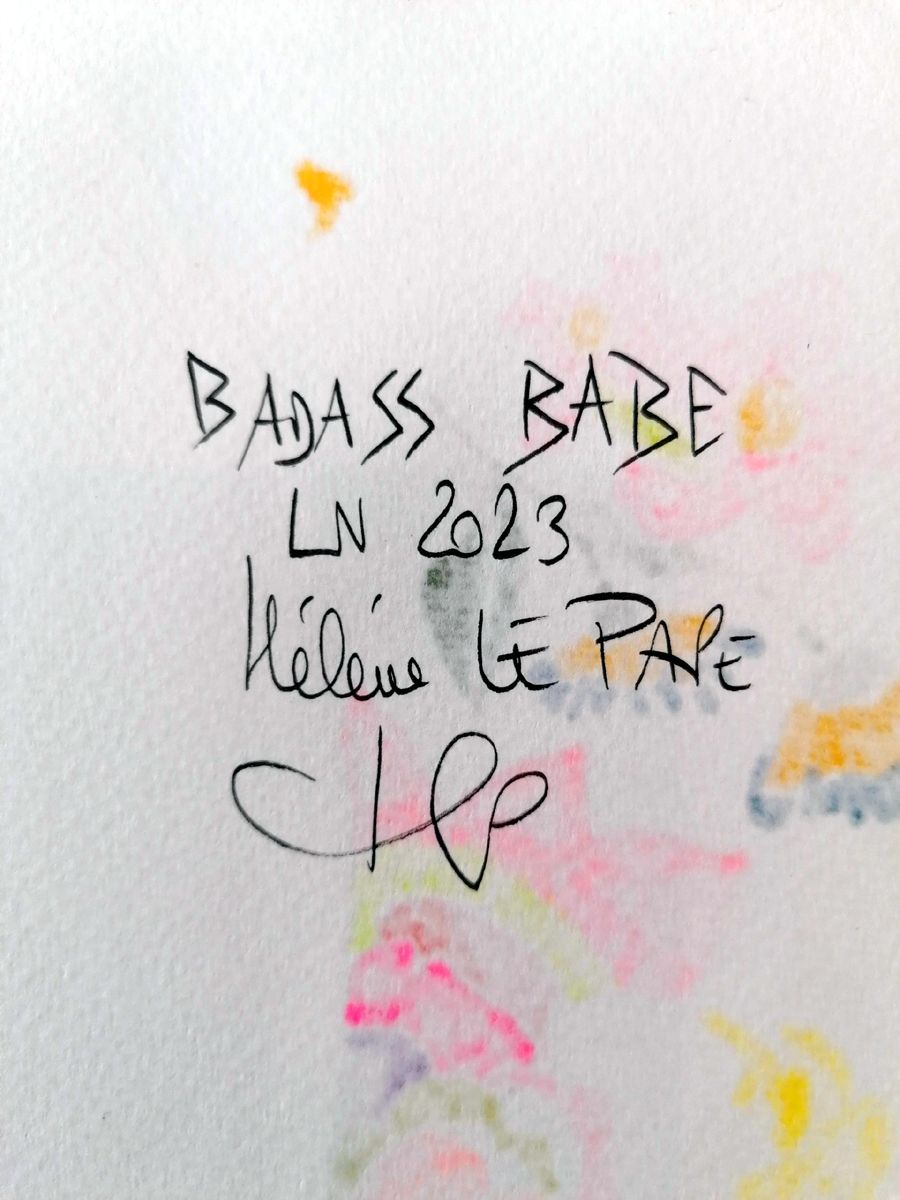 BADASS BABE
LN 2023
Hélène LE PAPE